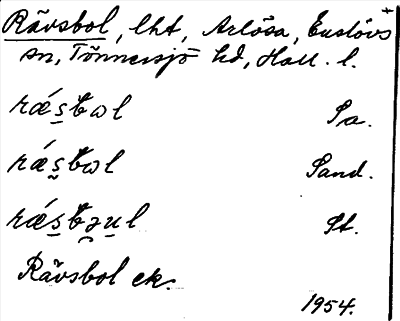 Rävsbol, lht, Arlösa, Enslövs +
sn, Tönnersjö hd, Hall. l.
rǽs̠ƀɷl Sa.
rǽs̠ƀɷl Sand.
rǽs̠ƀʒu̠l St.
Rävsbol ek.
1954.